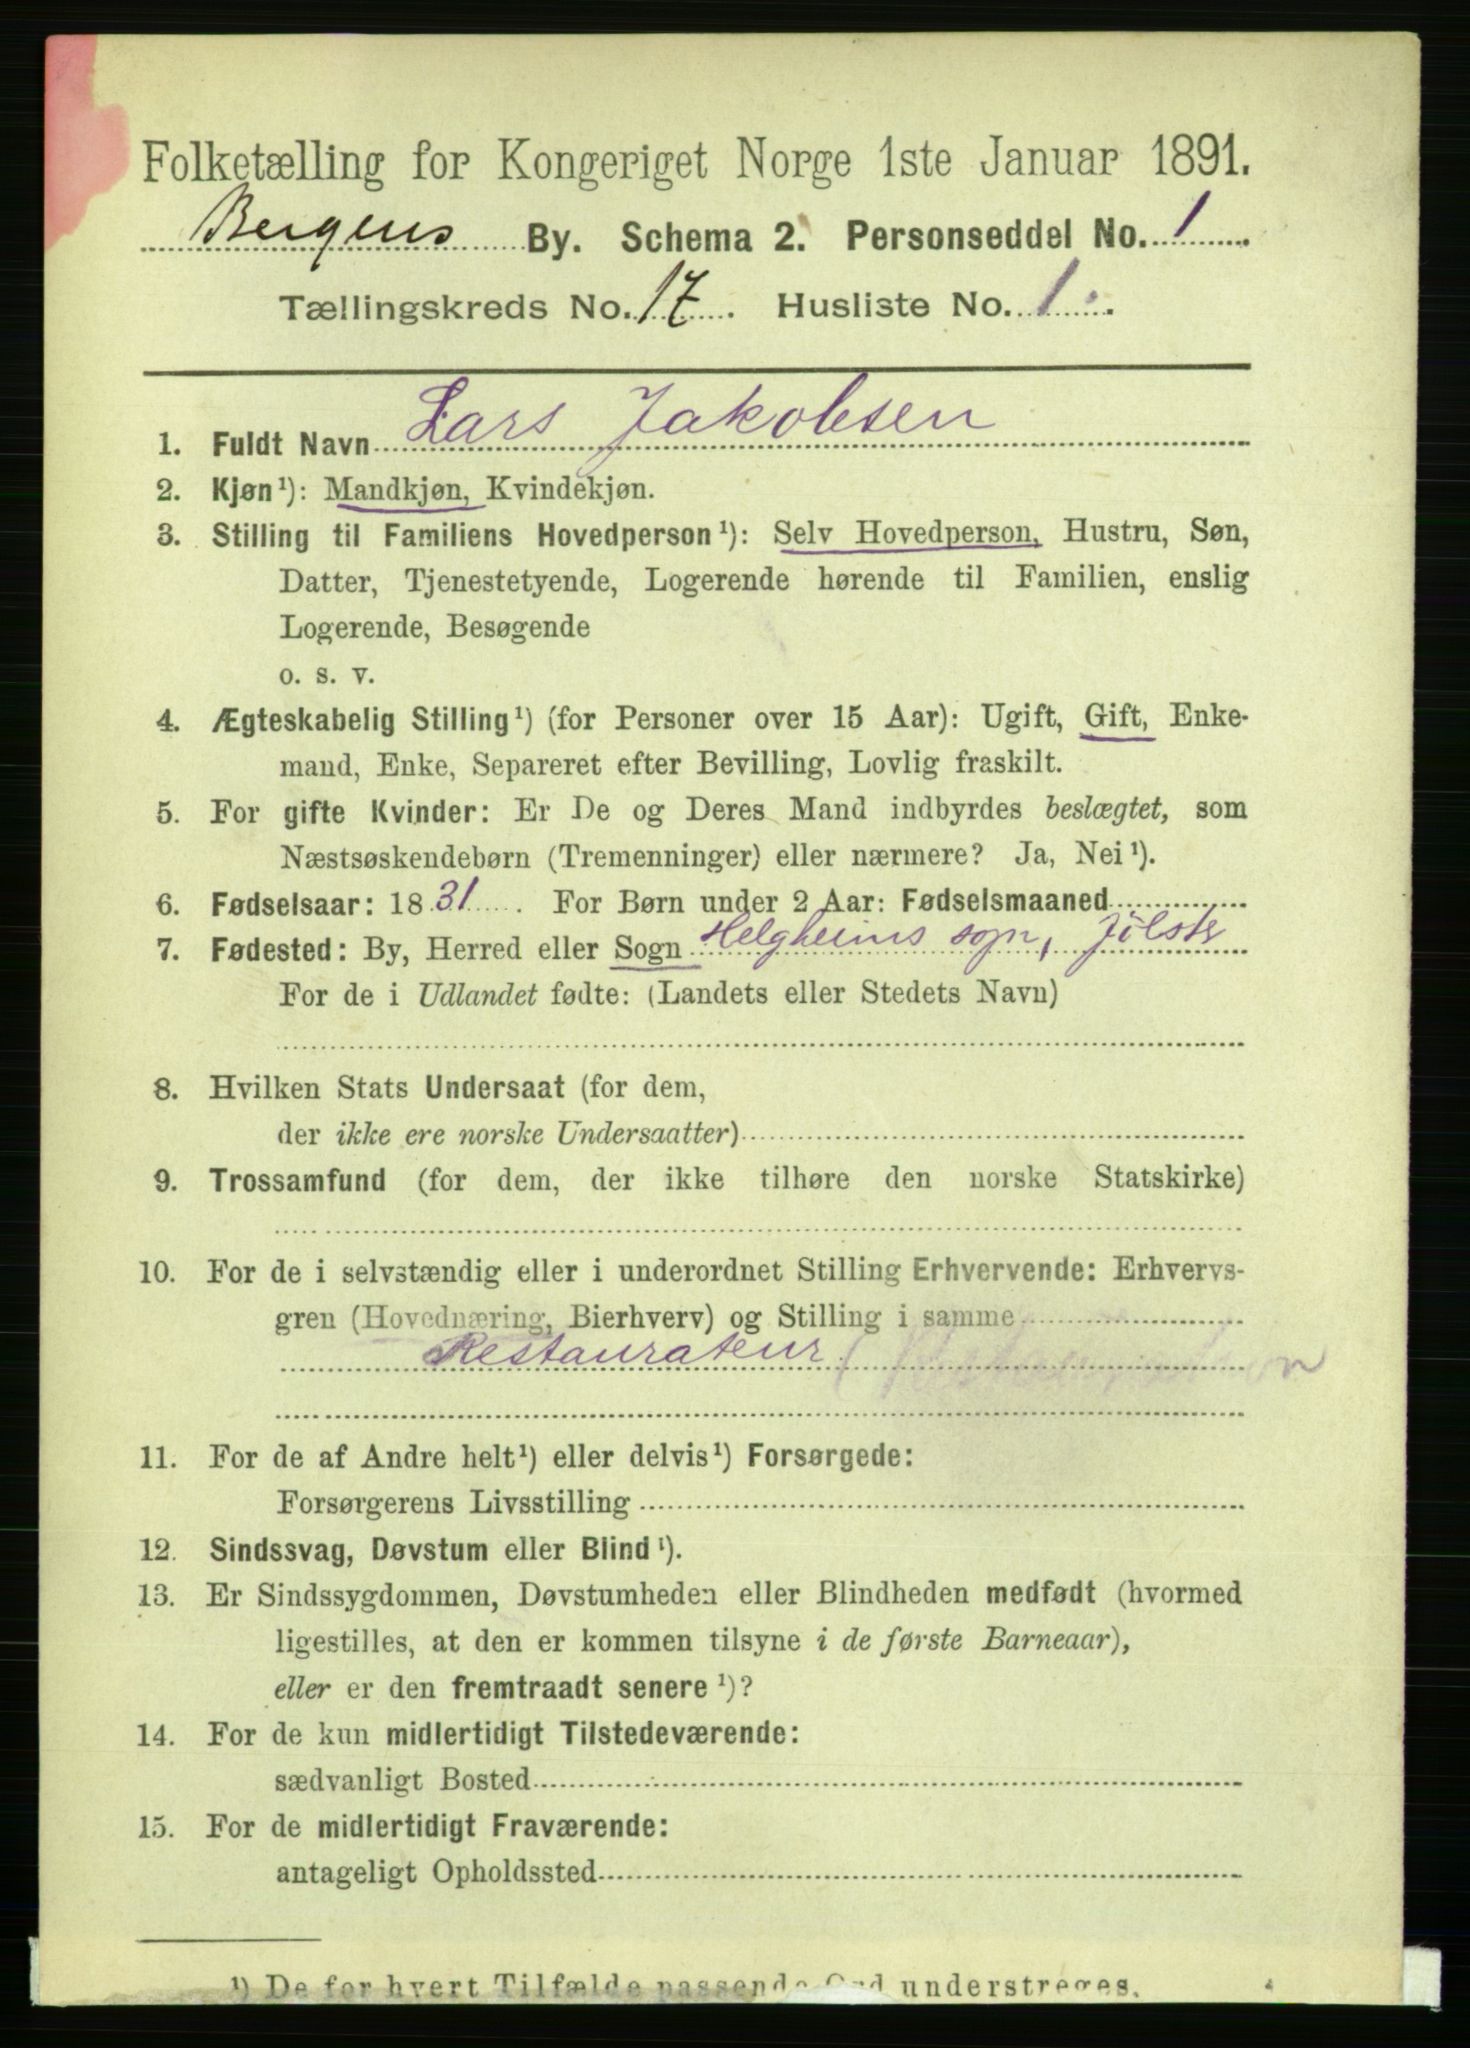 Folketælling for Kongeriget Norge 1ste Januar 1891.
Bergens By. Schema 2. Personseddel No. 1.
Tællingskreds No. 17. Husliste No. 1.
1. Fuldt Navn Lars Jakobsen
2. Kjøn¹): Mandkjøn, Kvindekjøn.
3. Stilling til Familiens Hovedperson¹): Selv Hovedperson, Hustru, Søn,
Datter, Tjenestetyende, Logerende hørende til Familien, enslig
Logerende, Besøgende
o. s. v.
4. Ægteskabelig Stilling¹) (for Personer over 15 Aar): Ugift, Gift, Enke-
mand, Enke, Separeret efter Bevilling, Lovlig fraskilt.
5. For gifte Kvinder: Er De og Deres Mand indbyrdes beslægtet, som
Næstsøskendebørn (Tremenninger) eller nærmere? Ja, Nei¹).
6. Fødselsaar: 1831. For Børn under 2 Aar: Fødselsmaaned
7. Fødested: By, Herred eller Sogn Helgheims sogn, Jölster
For de i Udlandet fødte: (Landets eller Stedets Navn)
8. Hvilken Stats Undersaat (for dem,
der ikke ere norske Undersaatter)
9. Trossamfund (for dem, der ikke tilhøre den norske Statskirke)
10. For de i selvstændig eller i underordnet Stilling Erhvervende: Erhvervs-
gren (Hovednæring, Bierhverv) og Stilling i samme
Restaurateur
11. For de af Andre helt¹) eller delvis¹) Forsørgede:
Forsørgerens Livsstilling
12. Sindssvag, Døvstum eller Blind¹).
13. Er Sindssygdommen, Døvstumheden eller Blindheden medfødt (hvormed
ligestilles, at den er kommen tilsyne i de første Barneaar),
eller er den fremtraadt senere¹)?
14. For de kun midlertidigt Tilstedeværende:
sædvanligt Bosted
15. For de midlertidigt Fraværende:
antageligt Opholdssted
¹) De for hvert Tilfælde passende Ord understreges.